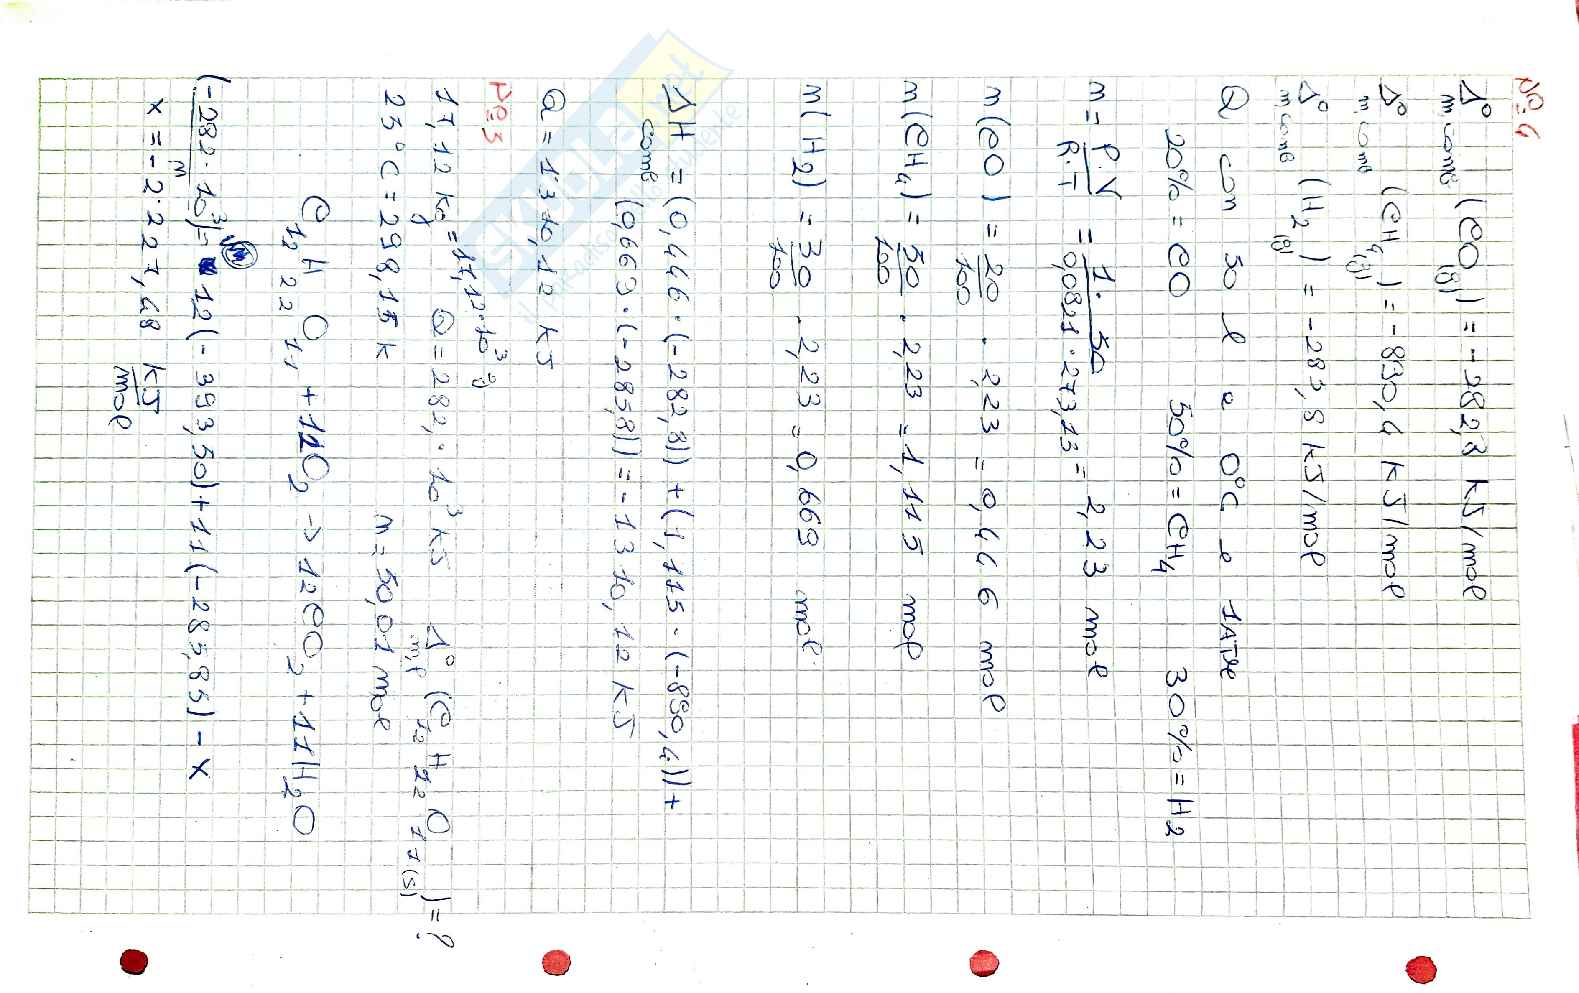 N°4
Δ°m,comb (CO(g)) = -282,8 kJ/mol
Δ°m,comb (CH4(g)) = -890,4 kJ/mol
Δ°m comb (H2(g)) = -285,8 kJ/mol
Q con 50 l a 0°C e 1 ATM
20% = CO 50% = CH4 30% = H2
n = P.V / R.T = 1. 50 / 0,0821. 273,15 = 2,23 mol
n (CO) = 20/100 . 2,23 = 0,446 mol
n (CH4) = 50/100 . 2,23 = 1,115 mol
n (H2) = 30/100 . 2,23 = 0,669 mol.
ΔH comb = (0,446 . (-282,8)) + (1,115 . (-890,4)) +
(0,669 . (-285,8)) = -1310,12 kJ
Q = 1310,12 kJ
N°3
17,12 kg = 17,12.10³ g Q = 282, . 10³ kJ Δ°m,f (C12H22O11(s)) = ?
25°C = 298,15 K n = 50,01 mol
C12H22O11 + 12O2 → 12CO2 + 11H2O
(-282.10³/n) = 12(-393,50) + 11(-285,85) - x
x = -2.227,68 kJ/mol
SKUOLA.net